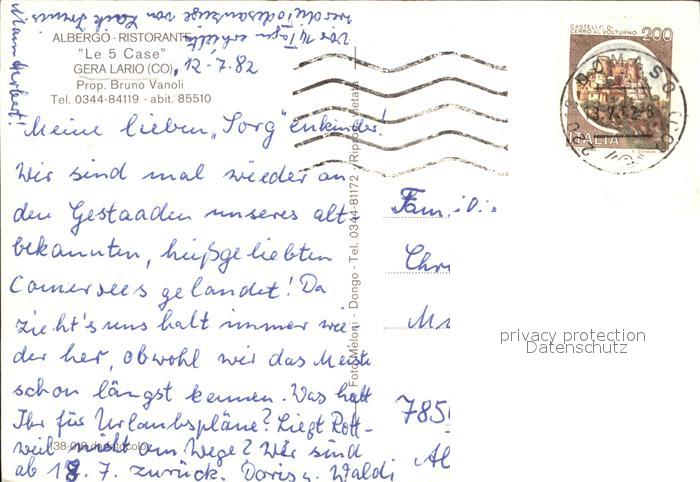 ALBERGO - RISTORANTE
"Le 5 Case"
GERA LARIO (CO), 12-7.82
Prop. Bruno Vanoli
Tel. 0344-84119 - abit. 85510
Meine lieben „Sorg"enkinder!
Wir sind mal wieder an
den Gestaaden unseres alt-
bekannten, heißgeliebten
Comersees gelandet! Da
zieht's uns halt immer wie-
der her, obwohl wir das Meiste
schon längst kennen. Was habt
Ihr für Urlaubspläne? Liegt Rott-
weil nicht am Wege? Wir sind
ab 18. 7. zurück. Doris u. Waldi
Vor 14 Tagen erhielt
von
Foto Meloni - Dongo - Tel. 0344-81172 - Ripr. Vietata
CASTELLO DI
CERRO AL VOLTURNO
200
ITALIA
DOMASO (CO)
13.7.82-8
Fam
Chr
785
Al
privacy protection
Datenschutz